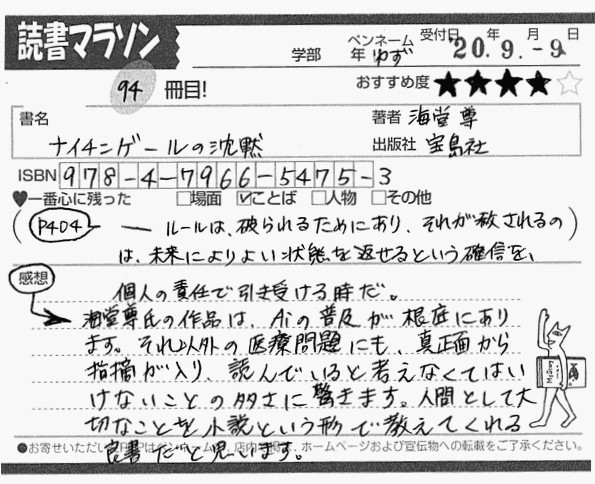 読書マラソン
学部 年 ペンネーム ゆず 受付日 20.年9.月-9日
94 冊目! おすすめ度 ★★★★☆
書名 著者 海堂 尊
ナイチンゲールの沈黙 出版社 宝島社
ISBN 978-4-7966-5475-3
♥一番心に残った □場面 ☑ことば □人物 □その他
(P404 — ルールは、破られるためにあり、それが赦されるの)
は、未来によりよい状態を返せるという確信を、
個人の責任で引き受ける時だ。
感想
海堂尊氏の作品は、Aiの普及が根底にあり
ます。それ以外の医療問題にも、真正面から
指摘が入り、読んでいると考えなくてはい
けないことの多さに驚きます。人間として大
切なことを小説という形で教えてくれる
良書だと思います。
●お寄せいただい はペン 店内 ホームページおよび宣伝物への転載をご了承ください。